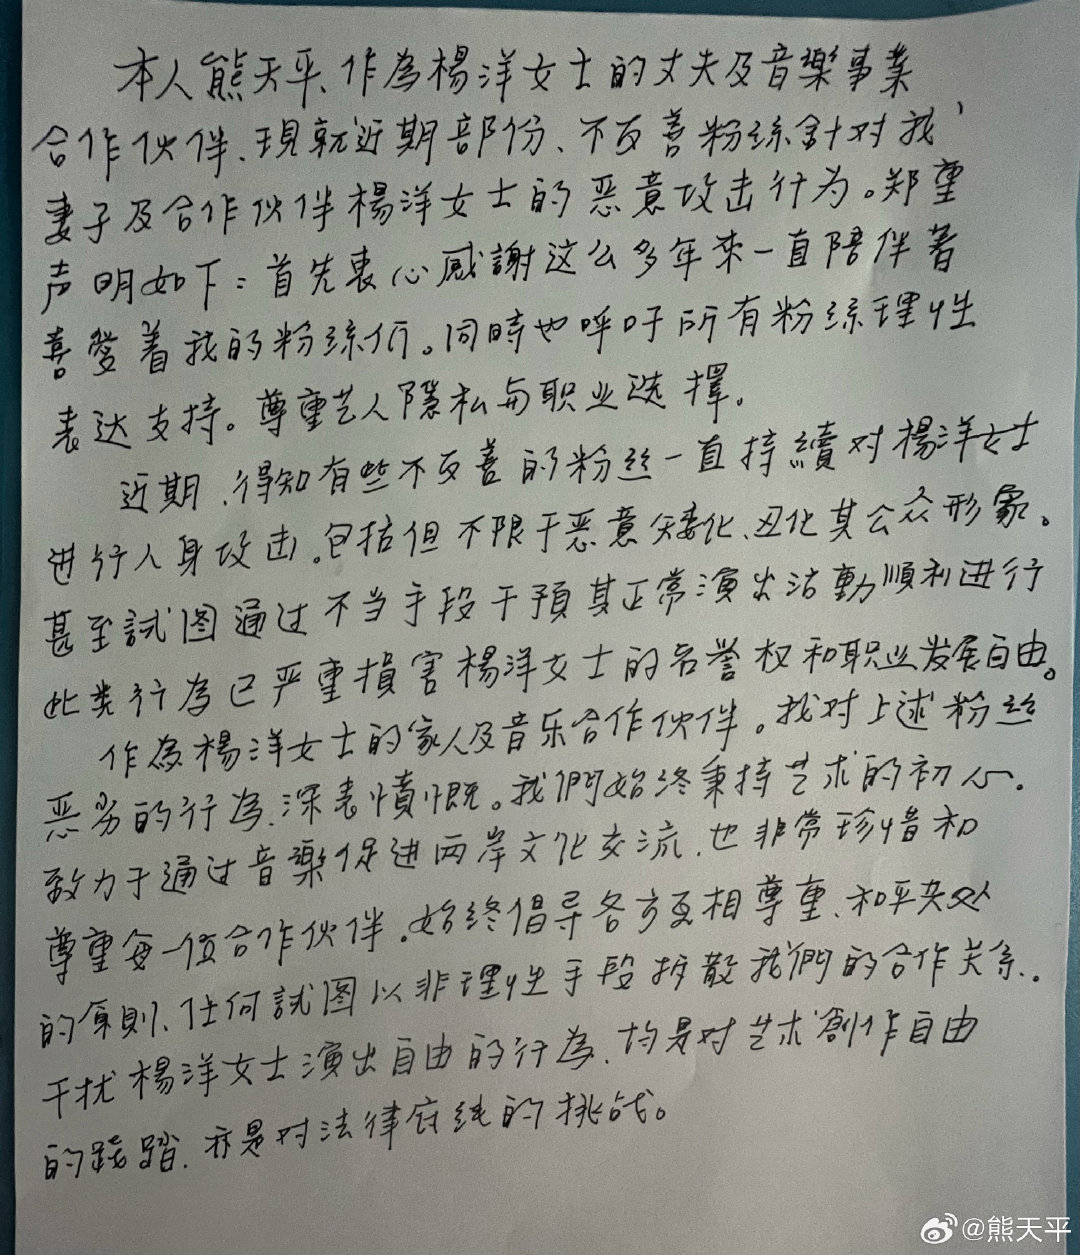 本人熊天平、作為楊洋女士的丈夫及音樂事業
合作伙伴、現就近期部份、不友善粉絲針对我
妻子及合作伙伴楊洋女士的恶意攻击行为。郑重
声明如下：首先衷心感謝这么多年来一直陪伴着
喜爱着我的粉絲们。同時也呼吁所有粉絲理性
表达支持。尊重艺人隱私与职业选擇。
近期、得知有些不友善的粉丝一直持續对楊洋女士
进行人身攻击。包括但不限于恶意矮化、丑化其公众形象。
甚至試图通过不当手段干預其正常演出活動順利进行
此类行為已严重損害楊洋女士的名誉权和职业发展自由。
作為楊洋女士的家人及音乐合作伙伴。我对上述粉丝
恶劣的行為、深表憤慨。我們始终秉持艺术的初心、
致力于通过音樂促进两岸文化交流、也非常珍惜和
尊重每一位合作伙伴。始终倡导各方互相尊重、和平共处
的原則、任何試图以非理性手段拆散我們的合作关系、
干扰楊洋女士演出自由的行為、均是对艺术創作自由
的践踏、亦是对法律底线的挑战。
@熊天平